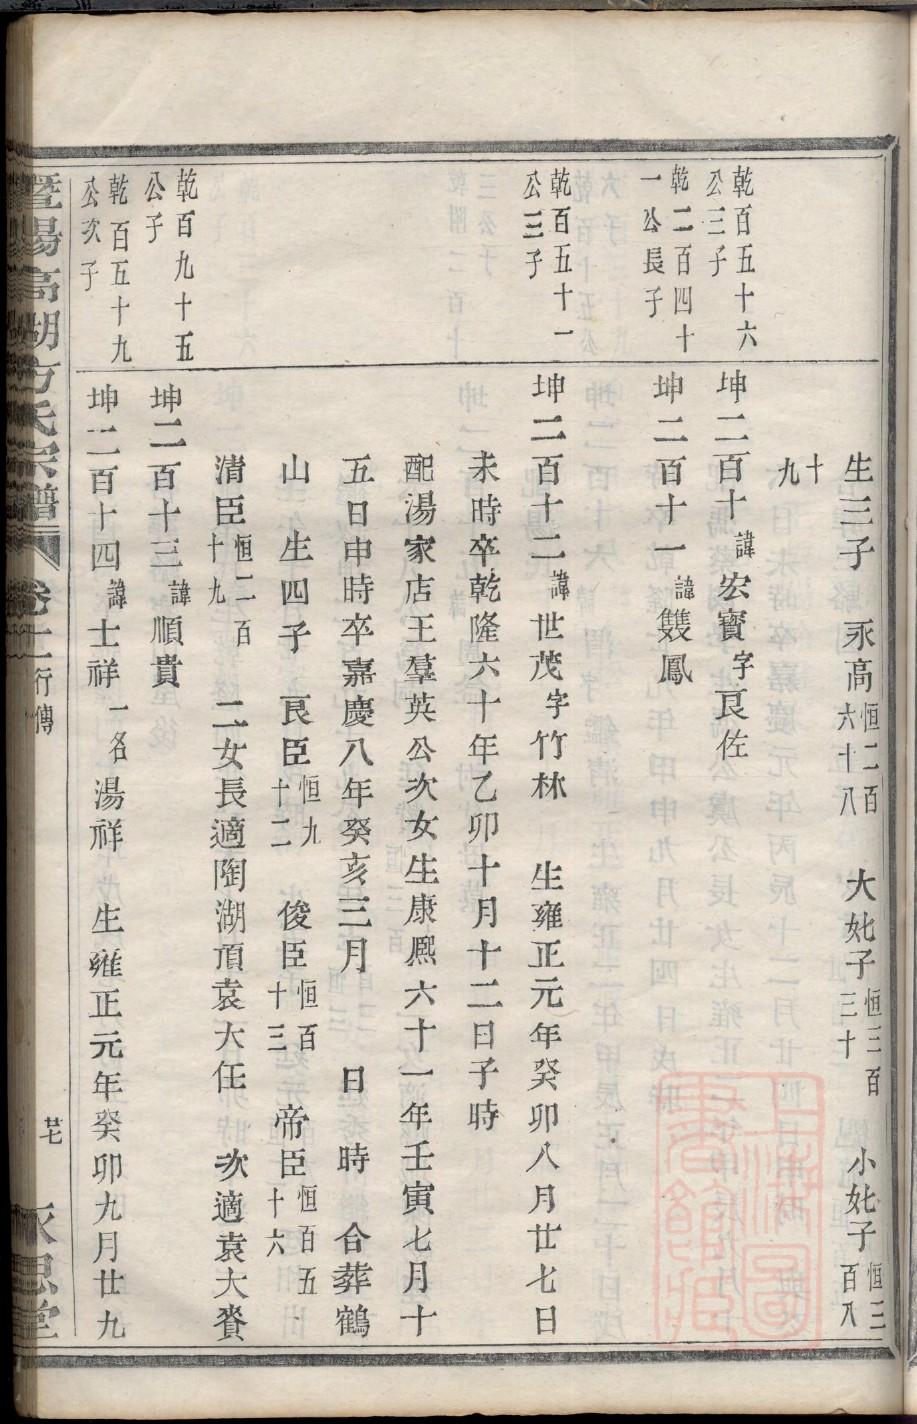 生三子 永高恒二百六十八 大妣子恒三百三十 小妣子恒三百八
十九
乾百五十六公三子
坤二百十諱宏寶字良佐
乾二百四十一公長子
坤二百十一諱雙鳳
乾百五十一公三子
坤二百十二諱世茂字竹林 生雍正元年癸卯八月廿七日
未時卒乾隆六十年乙卯十月十二日子時
配湯家店王羣英公次女生康熈六十一年壬寅七月十
五日申時卒嘉慶八年癸亥三月 日 時 合葬鶴
山 生四子 良臣恒九十二 俊臣恒百十三 帝臣恒百五十六
清臣恒二百十九 二女長適陶湖頂袁大任 次適袁大賚
乾百九十五公子
坤二百十三諱順貴
乾百五十九公次子
坤二百十四諱士祥 一名湯祥 生雍正元年癸卯九月廿九
暨陽高湖方氏宗譜 卷十一行傳 芒 永思堂